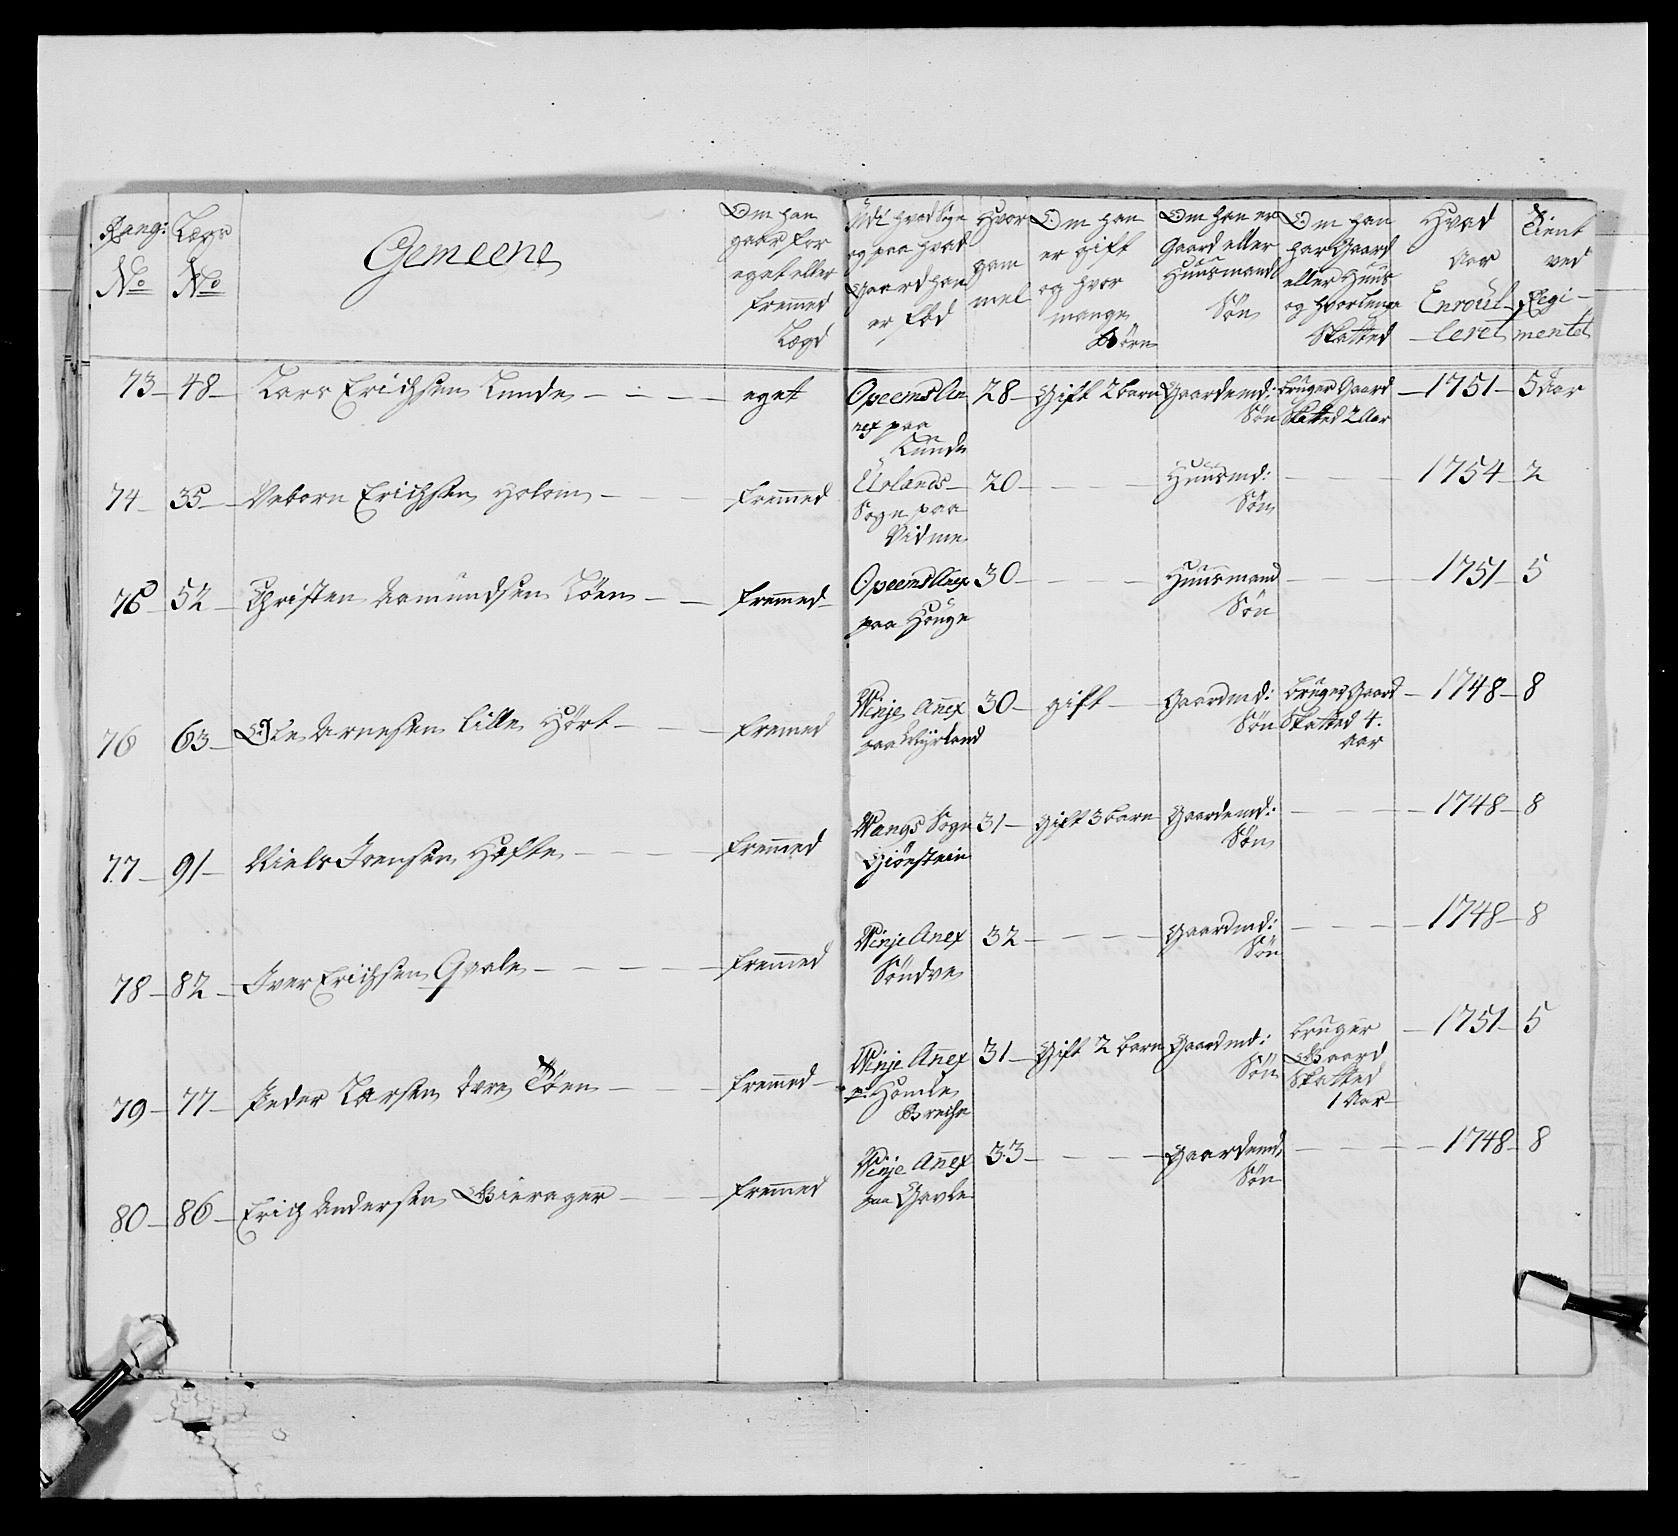 Rang: No
Lægs No
Gemeene
Om han gaar for eget eller fremmed Lægd
Udi hvad Sogn og paa hvad Gaard han er fød
Hvor gam mel
Om han er gift og hvor mange Børn
Om han er Gaard eller Huusmands Søn
Om han har Gaard eller Huus og hvorlenge Skatted
Hvad Aar Enroul- leret
Tient ved Regi- mentet
73 48 Lars Erichsen Lunde eget Opeems An nex paa Lunde 28 Gift 2 barn Gaardemd: Søn bruger Gaard Skatted 2 Aar 1751 5 Aar
74 35 Veborn Erichsen Holom fremmed Urlands Sogn paa Vidme 20 Huusmd: Søn 1754 2
75 52 Christen Aamundsen Tøen fremmed Opeems Anex paa Houge 30 Huusmand Søn 1751 5
76 63 Ole Arnesen lille Hört fremed Winje Anex paa 30 gift Gaardmd: Søn bruger Gaard Skatted 4. Aar 1748 8
77 91 Niels Ivensen Hefte fremmed Wangs Sogn Giönstein 31 Gift 3 barn Gaardemd: Søn 1748 8
78 82 Iver Erichsen Gavle fremmed Winje Anex Söndve 32 Gaardmd: Søn 1748 8
79 77 Peder Larsen Tøen fremmed Winje Anex Breche 31 Gift 2 barn Gaardmd: Søn bruger Gaard Skatted 1 Aar 1751 5
80 86 Erich Andersen Gierager fremmed Winje Anex paa Gavle 33 Gaardemd: Søn 1748 8